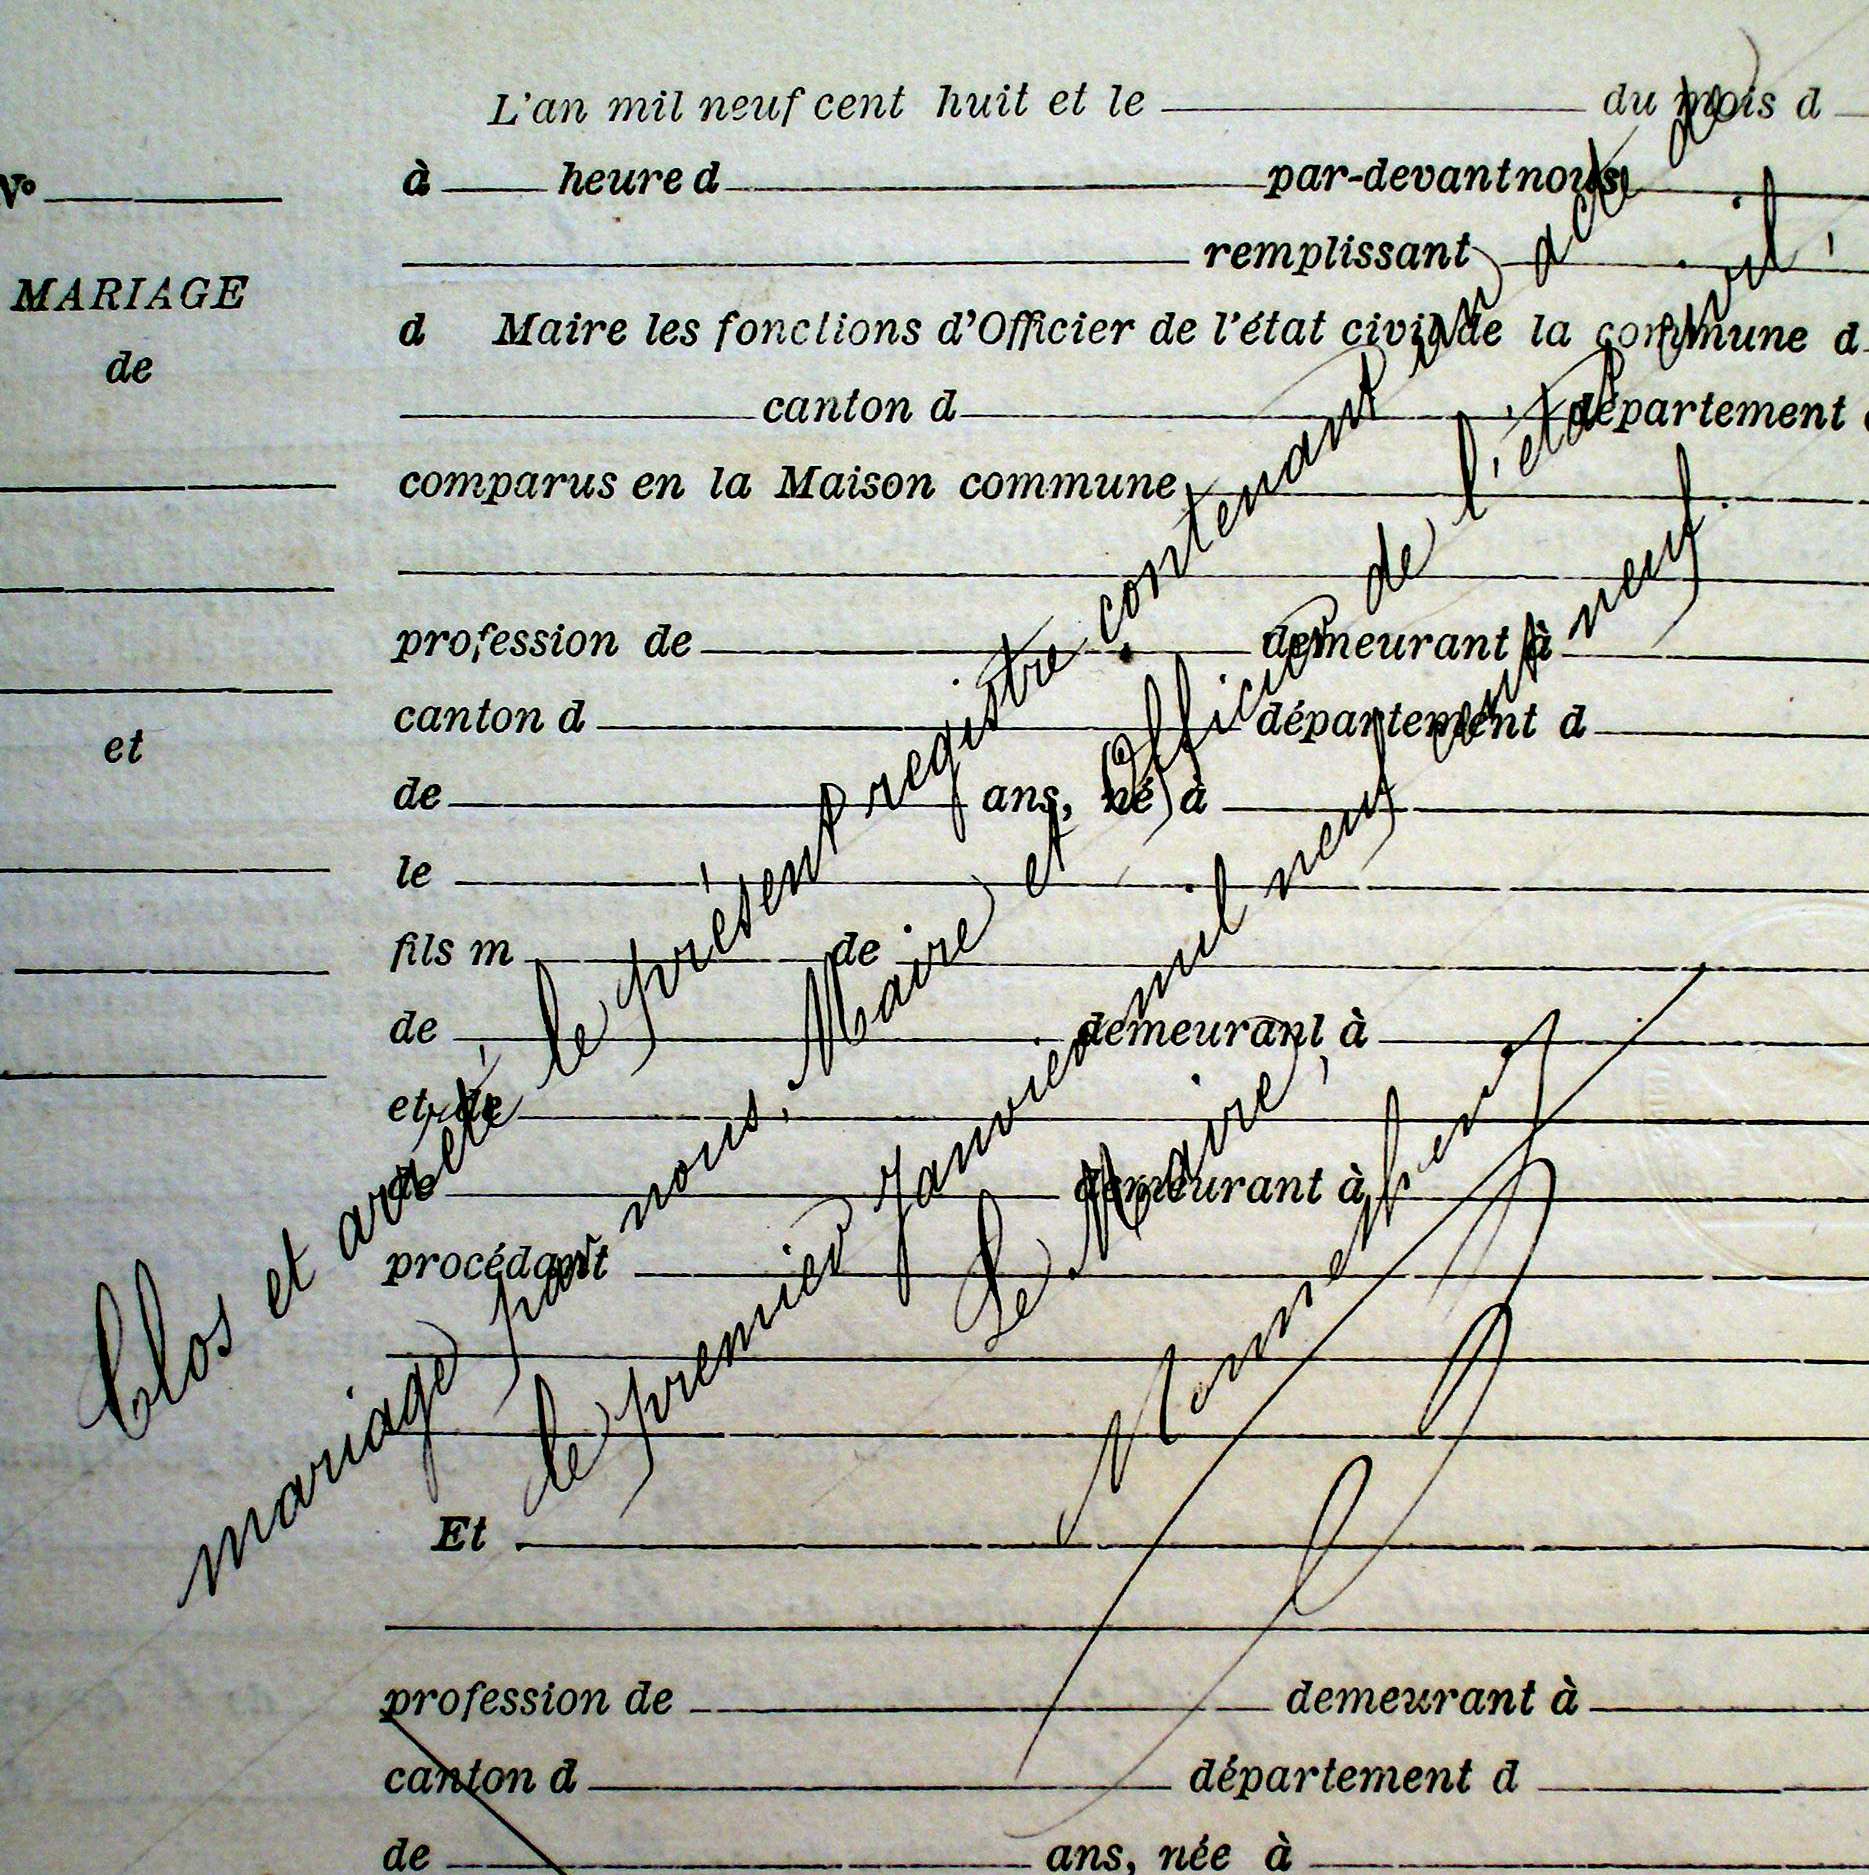 L'an mil neuf cent huit et le du mois d
à heure d par-devant nous
remplissant
d Maire les fonctions d'Officier de l'état civil de la commune d
canton d département
comparus en la Maison commune
profession de demeurant à
canton d département d
de ans, né à
le
fils m de
de demeurant à
et de
de demeurant à
procédant
Et
profession de demeurant à
canton d département d
de ans, née à
No
MARIAGE
de
et
Clos et arrêté le présent registre contenant un acte de
mariage par nous, Maire et Officier de l'état civil,
le premier Janvier mil neuf cent neuf.
Le Maire,